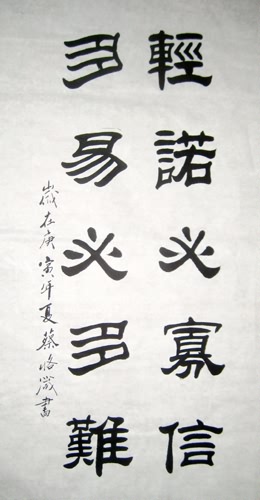 輕諾必寡信
多易必多難
歲在庚寅年夏蔡恪澂書